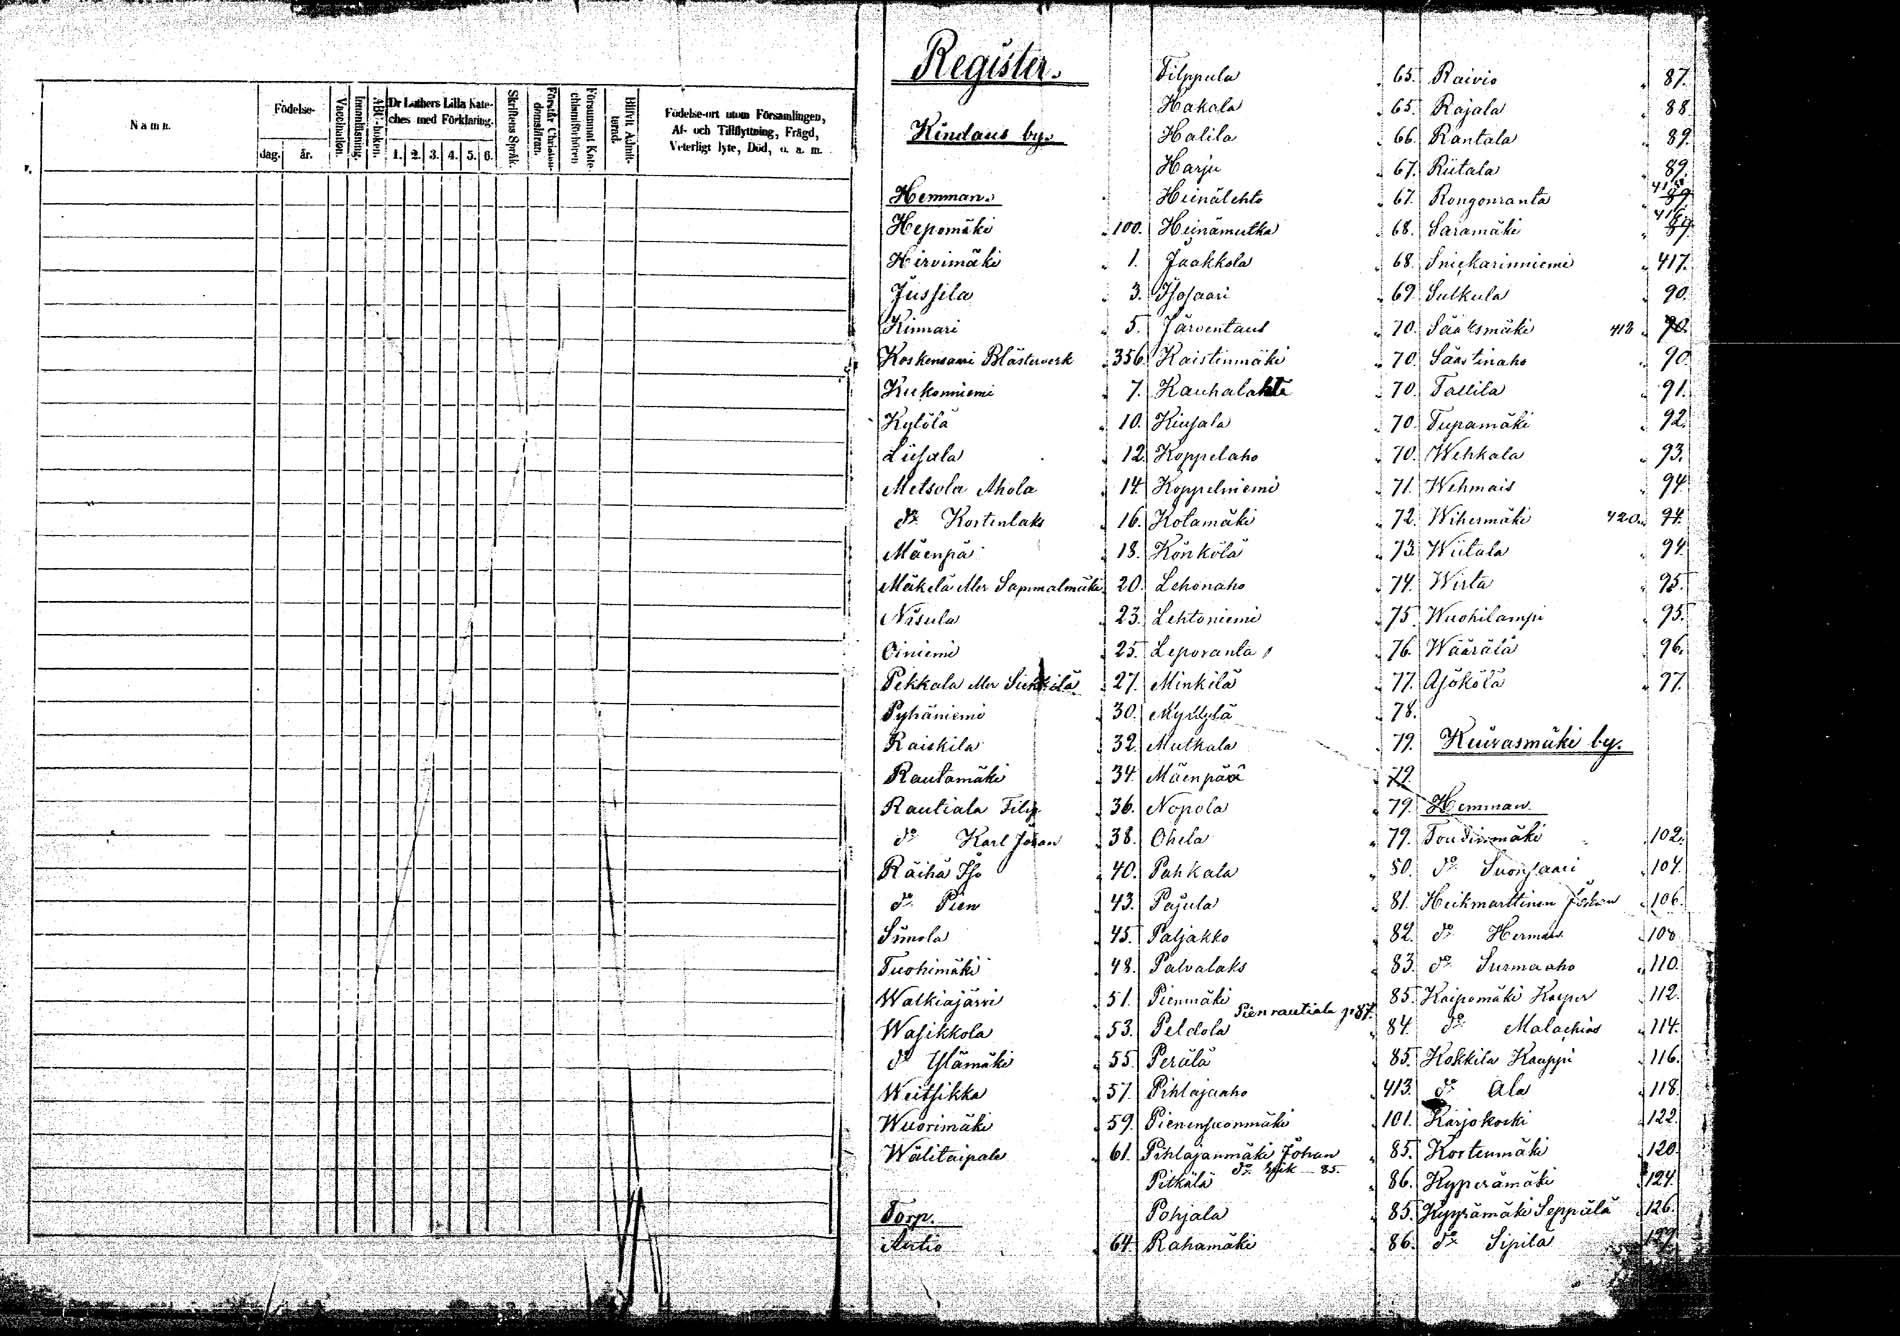 Namn.
Födelse-
dag.
år.
Vaccination.
Innanläsning.
ABC-boken.
Dr Luthers Lilla Kate-
ches med Förklaring.
1. 2. 3. 4. 5. 6.
Skriftens Språk.
Förstår Christen-
domsläran.
Försummat Kate-
chismiförhören
Blifvit Admit-
terad.
Födelse-ort utom Församlingen,
Af- och Tillflyttning, Frägd,
Veterligt lyte, Död, o. s. m.
Register.
Kindaus by.
Hemman.
Hepomäki 100.
Hirvimäki 1.
Jussila 3.
Kinnari 5.
Koskensaari Blästerverk 356
Kukonniemi 7.
Kylölä 10.
Liisala 12.
Metsola Ahola 14.
do Kortenlaks 16.
Mäenpä 18.
Mäkelä eller Sammalmäki 20.
Nisula 23.
Oiniemi 25.
Pekkala eller Sikkilä 27.
Pyhäniemi 30.
Raiskila 32.
Rautamäki 34
Rautiala Filip 36.
do Karl Johan 38.
Räihä Iso 40.
do Pien 43.
Simola 45.
Tuohimäki 48.
Walkiajärvi 51.
Wasikkola 53.
do Ylämäki 55.
Weitsikka 57.
Wuorimäki 59.
Wälitaipale 61.
Torp.
Autio 64.
Filppula 65.
Hakala 65.
Halila 66.
Harju 67.
Heinälehto 67.
Heinämutka 68.
Jaakkola 68.
Isosaari 69.
Järventaus 70.
Kaistinmäki 70.
Kauhalahti 70.
Kiusala 70.
Koppelaho 70.
Koppelniemi 71.
Kotamäki 72.
Könkölä 73.
Lehonaho 74.
Lehtoniemi 75.
Leporanta 76.
Minkilä 77.
Myllylä 78.
Mutkala 79.
Mäenpää 79.
Nopola 79.
Ohela 79.
Pahkala 80.
Pajula 81.
Paljakko 82.
Palvalaks 83.
Pienmäki 85.
Pienrautiala p 87.
Peldola 84.
Perälä 85.
Pihlajaaho 413.
Pienensuonmäki 101.
Pihlajanmäki Johan 85.
do Erik 85.
Pitkälä 86.
Pohjala 85.
Rahamäki 86.
Raivio 87.
Rajala 88
Rantala 89.
Riitala 89.
Rongonranta 89
Saramäki 89
Snickarinniemi 417.
Sulkula 90.
Sääksmäki 418 90.
Säästinaho 90
Tallila 91.
Tupamäki 92.
Wehkala 93.
Wehmais 94
Wihermäki 420. 94.
Wiitala 94.
Wirta 95.
Wuohilampi 95.
Wäärälä 96.
Ajökölä 97.
Kuivasmäki by.
Hemman.
Toudinmäki 102.
do Suonsaari 104.
Heikmarttinen Johan 106.
do Herman 108
do Surmaaho 110.
Kaipomäki Kasper 112.
do Malachias 114.
Kokkila Kauppi 116.
do Ala 118.
Karjokoski 122.
Kortenmäki 120.
Kyperämäki 124.
Kyyrämäki Seppälä 126.
do Sipilä 129.